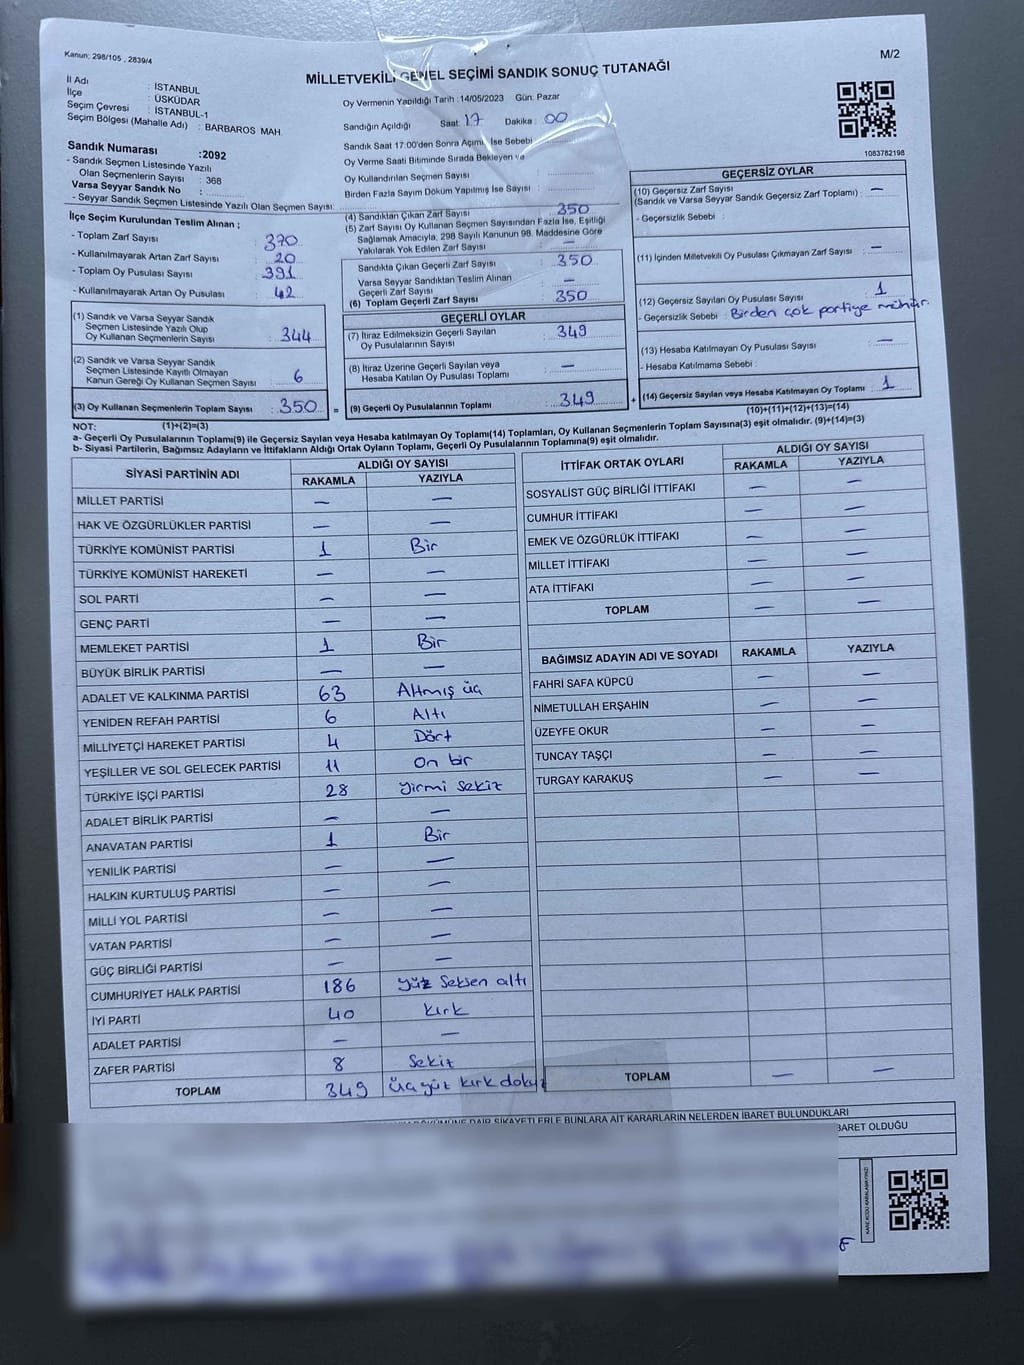 Kanun: 298/105 , 2839/4
M/2
MİLLETVEKİLİ GENEL SEÇİMİ SANDIK SONUÇ TUTANAĞI
İl Adı : İSTANBUL
İlçe : ÜSKÜDAR
Seçim Çevresi : İSTANBUL-1
Seçim Bölgesi (Mahalle Adı) : BARBAROS MAH.
Oy Vermenin Yapıldığı Tarih :14/05/2023 Gün: Pazar
Sandığın Açıldığı Saat: 17 Dakika : 00
Sandık Saat 17:00'den Sonra Açılmış İse Sebebi
Oy Verme Saati Bitiminde Sırada Bekleyen ve
Oy Kullandırılan Seçmen Sayısı :
Birden Fazla Sayım Döküm Yapılmış İse Sayısı :
1083782198
Sandık Numarası :2092
- Sandık Seçmen Listesinde Yazılı
Olan Seçmenlerin Sayısı : 368
Varsa Seyyar Sandık No :
- Seyyar Sandık Seçmen Listesinde Yazılı Olan Seçmen Sayısı:
İlçe Seçim Kurulundan Teslim Alınan ;
- Toplam Zarf Sayısı : 370
- Kullanılmayarak Artan Zarf Sayısı : 20
- Toplam Oy Pusulası Sayısı : 391
- Kullanılmayarak Artan Oy Pusulası : 42
(1) Sandık ve Varsa Seyyar Sandık
Seçmen Listesinde Yazılı Olup
Oy Kullanan Seçmenlerin Sayısı : 344
(2) Sandık ve Varsa Seyyar Sandık
Seçmen Listesinde Kayıtlı Olmayan
Kanun Gereği Oy Kullanan Seçmen Sayısı : 6
(3) Oy Kullanan Seçmenlerin Toplam Sayısı : 350 =
(1)+(2)=(3)
(4) Sandıktan Çıkan Zarf Sayısı : 350
(5) Zarf Sayısı Oy Kullanan Seçmen Sayısından Fazla İse, Eşitliği
Sağlamak Amacıyla, 298 Sayılı Kanunun 98. Maddesine Göre
Yakılarak Yok Edilen Zarf Sayısı : —
Sandıkta Çıkan Geçerli Zarf Sayısı : 350
Varsa Seyyar Sandıktan Teslim Alınan
Geçerli Zarf Sayısı : —
(6) Toplam Geçerli Zarf Sayısı : 350
GEÇERLİ OYLAR
(7) İtiraz Edilmeksizin Geçerli Sayılan
Oy Pusulalarının Sayısı : 349
(8) İtiraz Üzerine Geçerli Sayılan veya
Hesaba Katılan Oy Pusulası Toplamı : —
(9) Geçerli Oy Pusulalarının Toplamı : 349 +
GEÇERSİZ OYLAR
(10) Geçersiz Zarf Sayısı
(Sandık ve Varsa Seyyar Sandık Geçersiz Zarf Toplamı) : —
- Geçersizlik Sebebi :
(11) İçinden Milletvekili Oy Pusulası Çıkmayan Zarf Sayısı : —
(12) Geçersiz Sayılan Oy Pusulası Sayısı : 1
- Geçersizlik Sebebi : Birden çok partiye mühür.
(13) Hesaba Katılmayan Oy Pusulası Sayısı : —
- Hesaba Katılmama Sebebi :
(14) Geçersiz Sayılan veya Hesaba Katılmayan Oy Toplamı : 1
(10)+(11)+(12)+(13)=(14)
NOT:
a- Geçerli Oy Pusulalarının Toplamı(9) ile Geçersiz Sayılan veya Hesaba katılmayan Oy Toplamı(14) Toplamları, Oy Kullanan Seçmenlerin Toplam Sayısına(3) eşit olmalıdır. (9)+(14)=(3)
b- Siyasi Partilerin, Bağımsız Adayların ve İttifakların Aldığı Ortak Oyların Toplamı, Geçerli Oy Pusulalarının Toplamına(9) eşit olmalıdır.
SİYASİ PARTİNİN ADI ALDIĞI OY SAYISI
RAKAMLA YAZIYLA
MİLLET PARTİSİ — —
HAK VE ÖZGÜRLÜKLER PARTİSİ — —
TÜRKİYE KOMÜNİST PARTİSİ 1 Bir
TÜRKİYE KOMÜNİST HAREKETİ — —
SOL PARTİ — —
GENÇ PARTİ — —
MEMLEKET PARTİSİ 1 Bir
BÜYÜK BİRLİK PARTİSİ — —
ADALET VE KALKINMA PARTİSİ 63 Altmış üç
YENİDEN REFAH PARTİSİ 6 Altı
MİLLİYETÇİ HAREKET PARTİSİ 4 Dört
YEŞİLLER VE SOL GELECEK PARTİSİ 11 On bir
TÜRKİYE İŞÇİ PARTİSİ 28 yirmi sekiz
ADALET BİRLİK PARTİSİ — —
ANAVATAN PARTİSİ 1 Bir
YENİLİK PARTİSİ — —
HALKIN KURTULUŞ PARTİSİ — —
MİLLİ YOL PARTİSİ — —
VATAN PARTİSİ — —
GÜÇ BİRLİĞİ PARTİSİ — —
CUMHURİYET HALK PARTİSİ 186 yüz seksen altı
İYİ PARTİ 40 kırk
ADALET PARTİSİ — —
ZAFER PARTİSİ 8 Sekiz
TOPLAM 349 üçyüz kırk dokuz
İTTİFAK ORTAK OYLARI ALDIĞI OY SAYISI
RAKAMLA YAZIYLA
SOSYALİST GÜÇ BİRLİĞİ İTTİFAKI — —
CUMHUR İTTİFAKI — —
EMEK VE ÖZGÜRLÜK İTTİFAKI — —
MİLLET İTTİFAKI — —
ATA İTTİFAKI — —
TOPLAM — —
BAĞIMSIZ ADAYIN ADI VE SOYADI RAKAMLA YAZIYLA
FAHRİ SAFA KÜPCÜ — —
NİMETULLAH ERŞAHİN — —
ÜZEYFE OKUR — —
TUNCAY TAŞÇI — —
TURGAY KARAKUŞ — —
TOPLAM — —
DÖKÜMÜNE DAİR ŞİKAYETLERLE BUNLARA AİT KARARLARIN NELERDEN İBARET BULUNDUKLARI
İBARET OLDUĞU